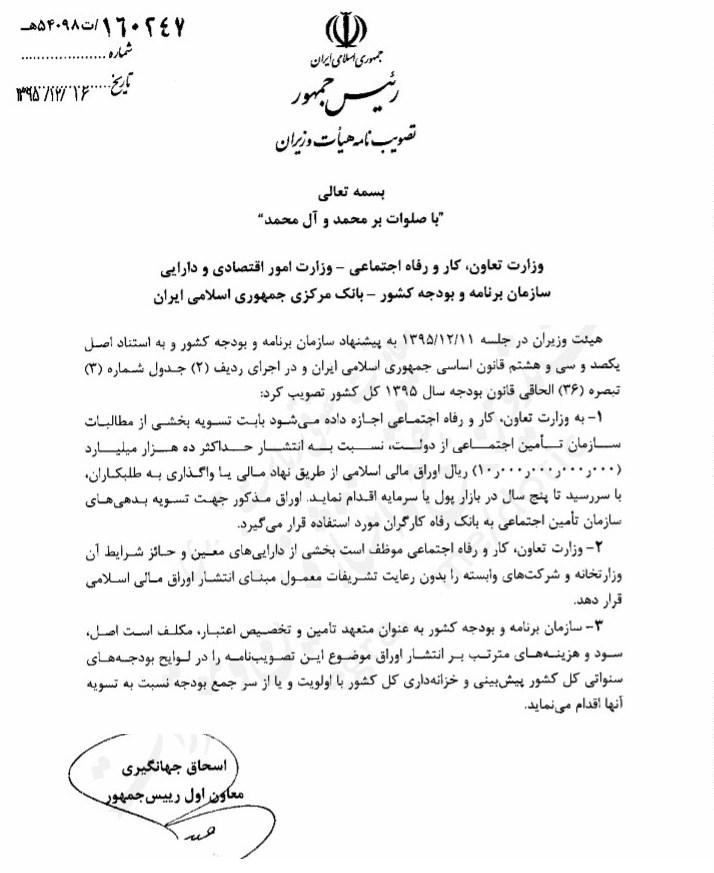 ۱۶۰۲۴۷/ت۵۴۰۹۸هـ
شماره ....................
تاریخ ۱۳۹۵/۱۲/۱۶
جمهوری اسلامی ایران
رئیس جمهور
تصویب نامه هیأت وزیران
بسمه تعالی
"با صلوات بر محمد و آل محمد"
وزارت تعاون، کار و رفاه اجتماعی – وزارت امور اقتصادی و دارایی
سازمان برنامه و بودجه کشور – بانک مرکزی جمهوری اسلامی ایران
هیئت وزیران در جلسه ۱۳۹۵/۱۲/۱۱ به پیشنهاد سازمان برنامه و بودجه کشور و به استناد اصل
یکصد و سی و هشتم قانون اساسی جمهوری اسلامی ایران و در اجرای ردیف (۲) جدول شماره (۳)
تبصره (۳۶) الحاقی قانون بودجه سال ۱۳۹۵ کل کشور تصویب کرد:
۱- به وزارت تعاون، کار و رفاه اجتماعی اجازه داده می‌شود بابت تسویه بخشی از مطالبات
سازمان تأمین اجتماعی از دولت، نسبت به انتشار حداکثر ده هزار میلیارد
(۱۰٫۰۰۰٫۰۰۰٫۰۰۰٫۰۰۰) ریال اوراق مالی اسلامی از طریق نهاد مالی یا واگذاری به طلبکاران،
با سررسید تا پنج سال در بازار پول یا سرمایه اقدام نماید. اوراق مذکور جهت تسویه بدهی‌های
سازمان تأمین اجتماعی به بانک رفاه کارگران مورد استفاده قرار می‌گیرد.
۲- وزارت تعاون، کار و رفاه اجتماعی موظف است بخشی از دارایی‌های معین و حائز شرایط آن
وزارتخانه و شرکت‌های وابسته را بدون رعایت تشریفات معمول مبنای انتشار اوراق مالی اسلامی
قرار دهد.
۳- سازمان برنامه و بودجه کشور به عنوان متعهد تامین و تخصیص اعتبار، مکلف است اصل،
سود و هزینه‌های مترتب بر انتشار اوراق موضوع این تصویب‌نامه را در لوایح بودجه‌های
سنواتی کل کشور پیش‌بینی و خزانه‌داری کل کشور با اولویت و یا از سر جمع بودجه نسبت به تسویه
آنها اقدام می‌نماید.
اسحاق جهانگیری
معاون اول رییس‌جمهور